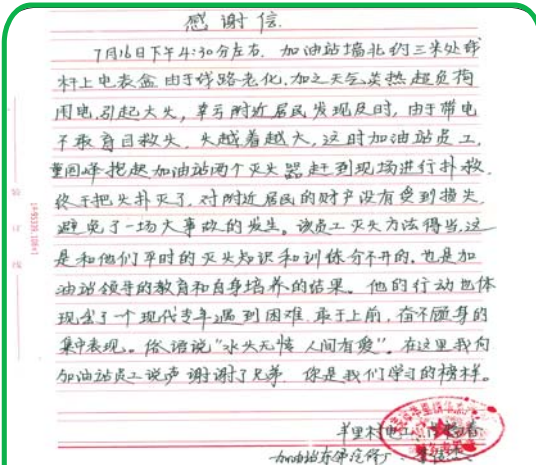 感谢信
7月16日下午4:30分左右.加油站墙北约三米处线
杆上电表盒由于线路老化.加之天气炎热超负荷
用电.引起大火,幸亏附近居民发现及时,由于带电
不敢盲目救火.火越着越大,这时加油站员工.
董国峰抱起加油站两个灭火器赶到现场进行扑救.
终于把火扑灭了.对附近居民的财产没有受到损失.
避免了一场大事故的发生。该员工灭火方法得当.这
是和他们平时的灭火知识和训练分不开的.也是加
油站领导的教育和自身培养的结果。他的行动也体
现出了一个现代青年遇到困难.敢于上前,奋不顾身的
集中表现。俗语说“水火无情 人间有爱”.在这里我向
加油站员工说声谢谢了兄弟.你是我们学习的榜样。
半里村电工
加油站东邻汽修厂